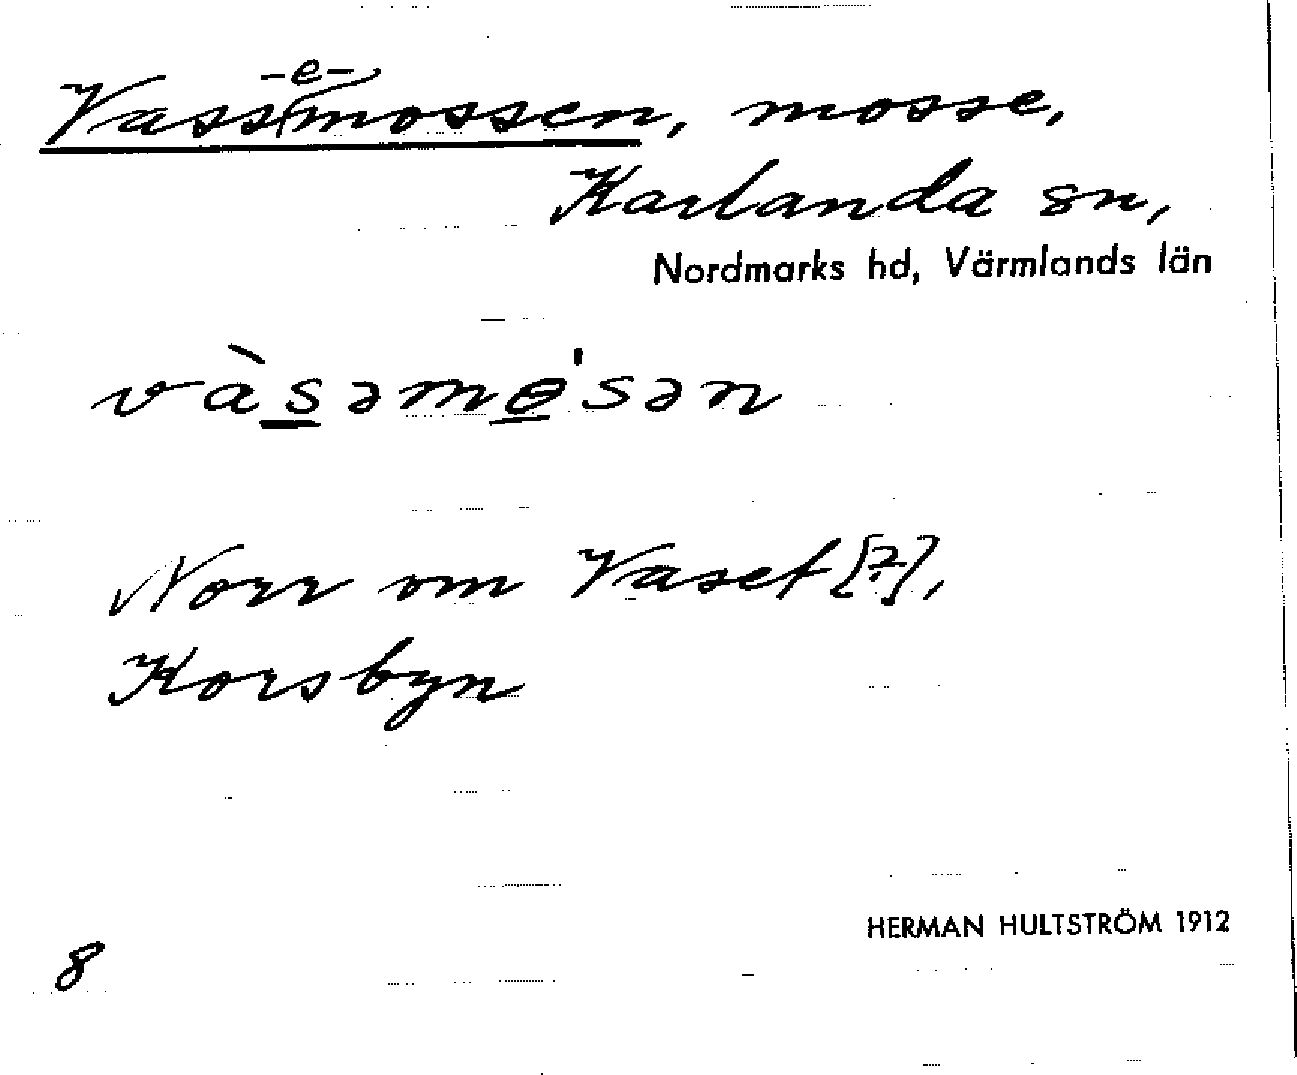 -e-
Vassmossen, mosse,
Karlanda sn,
Nordmarks hd, Värmlands län
vàsəmɵ'sən
Norr om Vaset [?],
Korsbyn
HERMAN HULTSTRÖM 1912
8